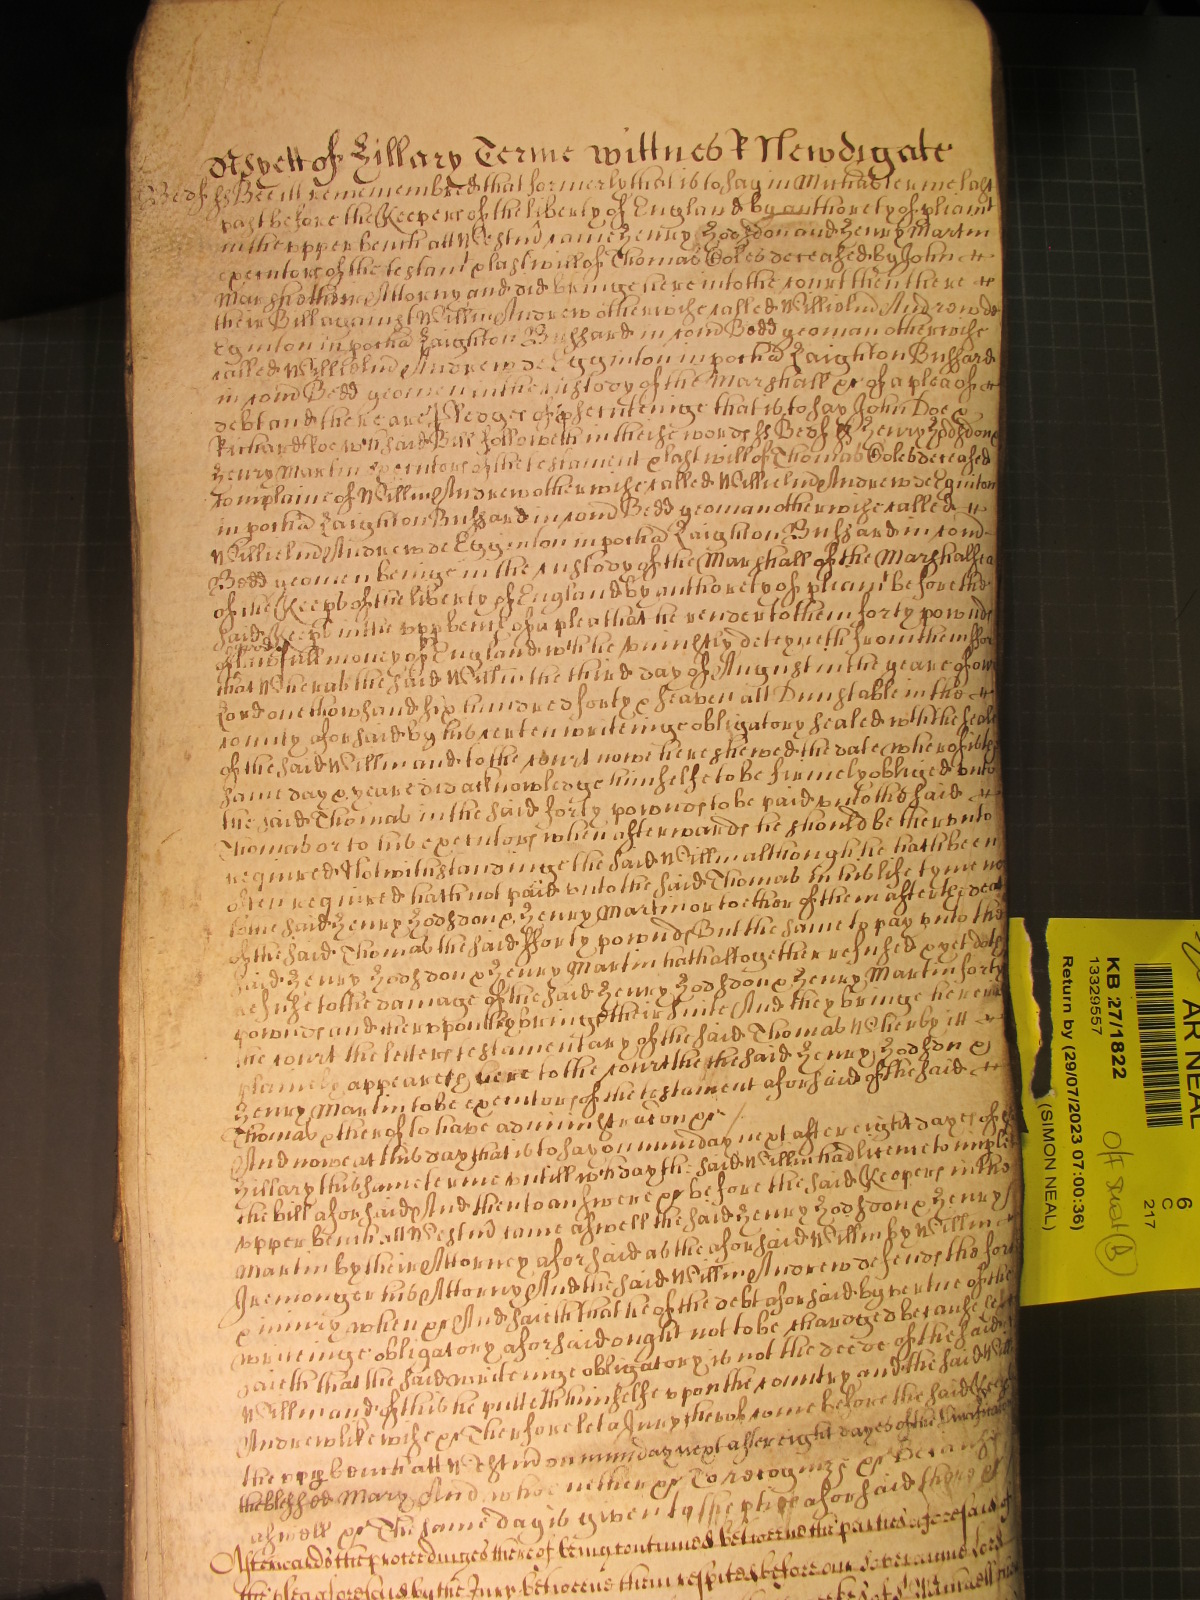 As yett of Hillary Terme wittnes R Newdigate
Bedf ss Bee itt remembred that formerly that is to say in Michas terme last
past before the Keepers of the liberty of England by authorety of pleamt
in the upper bench att Westmr came Henry Hodsdon and Henry Martin
executors of the testamt & last will of Thomas Coles deceased by John
Marsh their Attorny and did bringe here into the court then there
their Bill against Willm Andrew otherwise called Willielm Andrew de
Eginton in pochia Laighton Bussard in com Bedd yeoman otherwise
called Willielm Andrew de Egginton in pochia Laighton Bussard
in com Bedd yeomen in the custody of the Marshall &c of a plea of
debt and there are Pledges of psecuteinge that is to say John Doe &
Richard Roe wch said Bill followeth in theise words ss Bedf ss Henry Hodsdon &
Henry Martin executors of the testament & last will of Thomas Coles deceased
complaine of Willm Andrew otherwise called Willielm Andrew de Eginton
in pochia Laighton Bussard in com Bedd yeoman otherwise called
Willielm Andrew de Egginton in pochia Laighton Bussard in com
Bedd yeomen beinge in the custody of the Marshall of the Marshalsea
of the Keeps of the liberty of England by authorety of pleamt before the
said Keeps in the upp bench of a plea that he render to them forty pownds
of lawfull money of England wch he uniustly deteyneth from them for
that Wheras the said Willm the third day of August in the yeare of our
Lord one thowsand six hundred forty & seaven att Dunstable in the
county aforsaid by his certen writeinge obligatory sealed with the seale
of the said Willm and to the court nowe here shewed the date wherof is the
same day & yeare did acknowledge himselfe to be firmely obliged unto
the said Thomas in the said forty pownds to be paid unto the said
Thomas or to his executors when afterwards he should be therunto
required Notwithstandinge the said Willm although he hath been
often required hath not paid unto the said Thomas in his life tyme nor
to the said Henry Hodsdon & Henry Martin or to ether of them after the death
of the said Thomas the said fforty pownds But the same to pay unto the
said Henry Hodsdon & Henry Martin hath altogether refused & yet doth
refuse to the damage of the said Henry Hodsdon & Henry Martin forty
pownds and therupon they bringe their suite And they bringe here into
the court the letters testamentary of the said Thomas Wherby itt
plainely appeareth here to the court the said Henry Hodsdon &
Henry Martin to be executors of the testament aforsaid of the said
Thomas & therof to have administracon &c
And nowe at this day that is to say on munday next after eight dayes of St
Hillary this same terme untill wch day the said Willm had licence to implead
the bill aforsaid And then to answere &c before the said Keepers in the
upper bench att Westmr came aswell the said Henry Hodsdon & Henry
Martin by their Attorney aforsaid as the aforsaid Willm by Willm
Iremonger his Attorny And the said Willm Andrew defends the force
& iniury when &c And saieth that he of the debt aforsaid by vertue of the
writeinge obligatory aforsaid ought not to be charged because he
saieth that the said writeinge obligatory is not the deede of the said
Willm and of this he putteth himselfe upon the country and the said Willm
Andrew likewise &c Therfore let a Jury therof come before the said Keeps
the upp bench att Westmr on munday next after eight dayes of the Purificacon
the blessed Mary And who nether &c To recognize &c Because
aswell &c The same day is given to the pties aforsaid there &c
Afterwards the proceedinges thereof being continued betweene the parties aforesaid of
the plea aforesaid by the Jury betweene them respited before our Soveraigne Lord
AR NEAL
KB 27/1822
13329557
Return by (29/07/2023 07:00:36)
(SIMON NEAL)
6
C
217